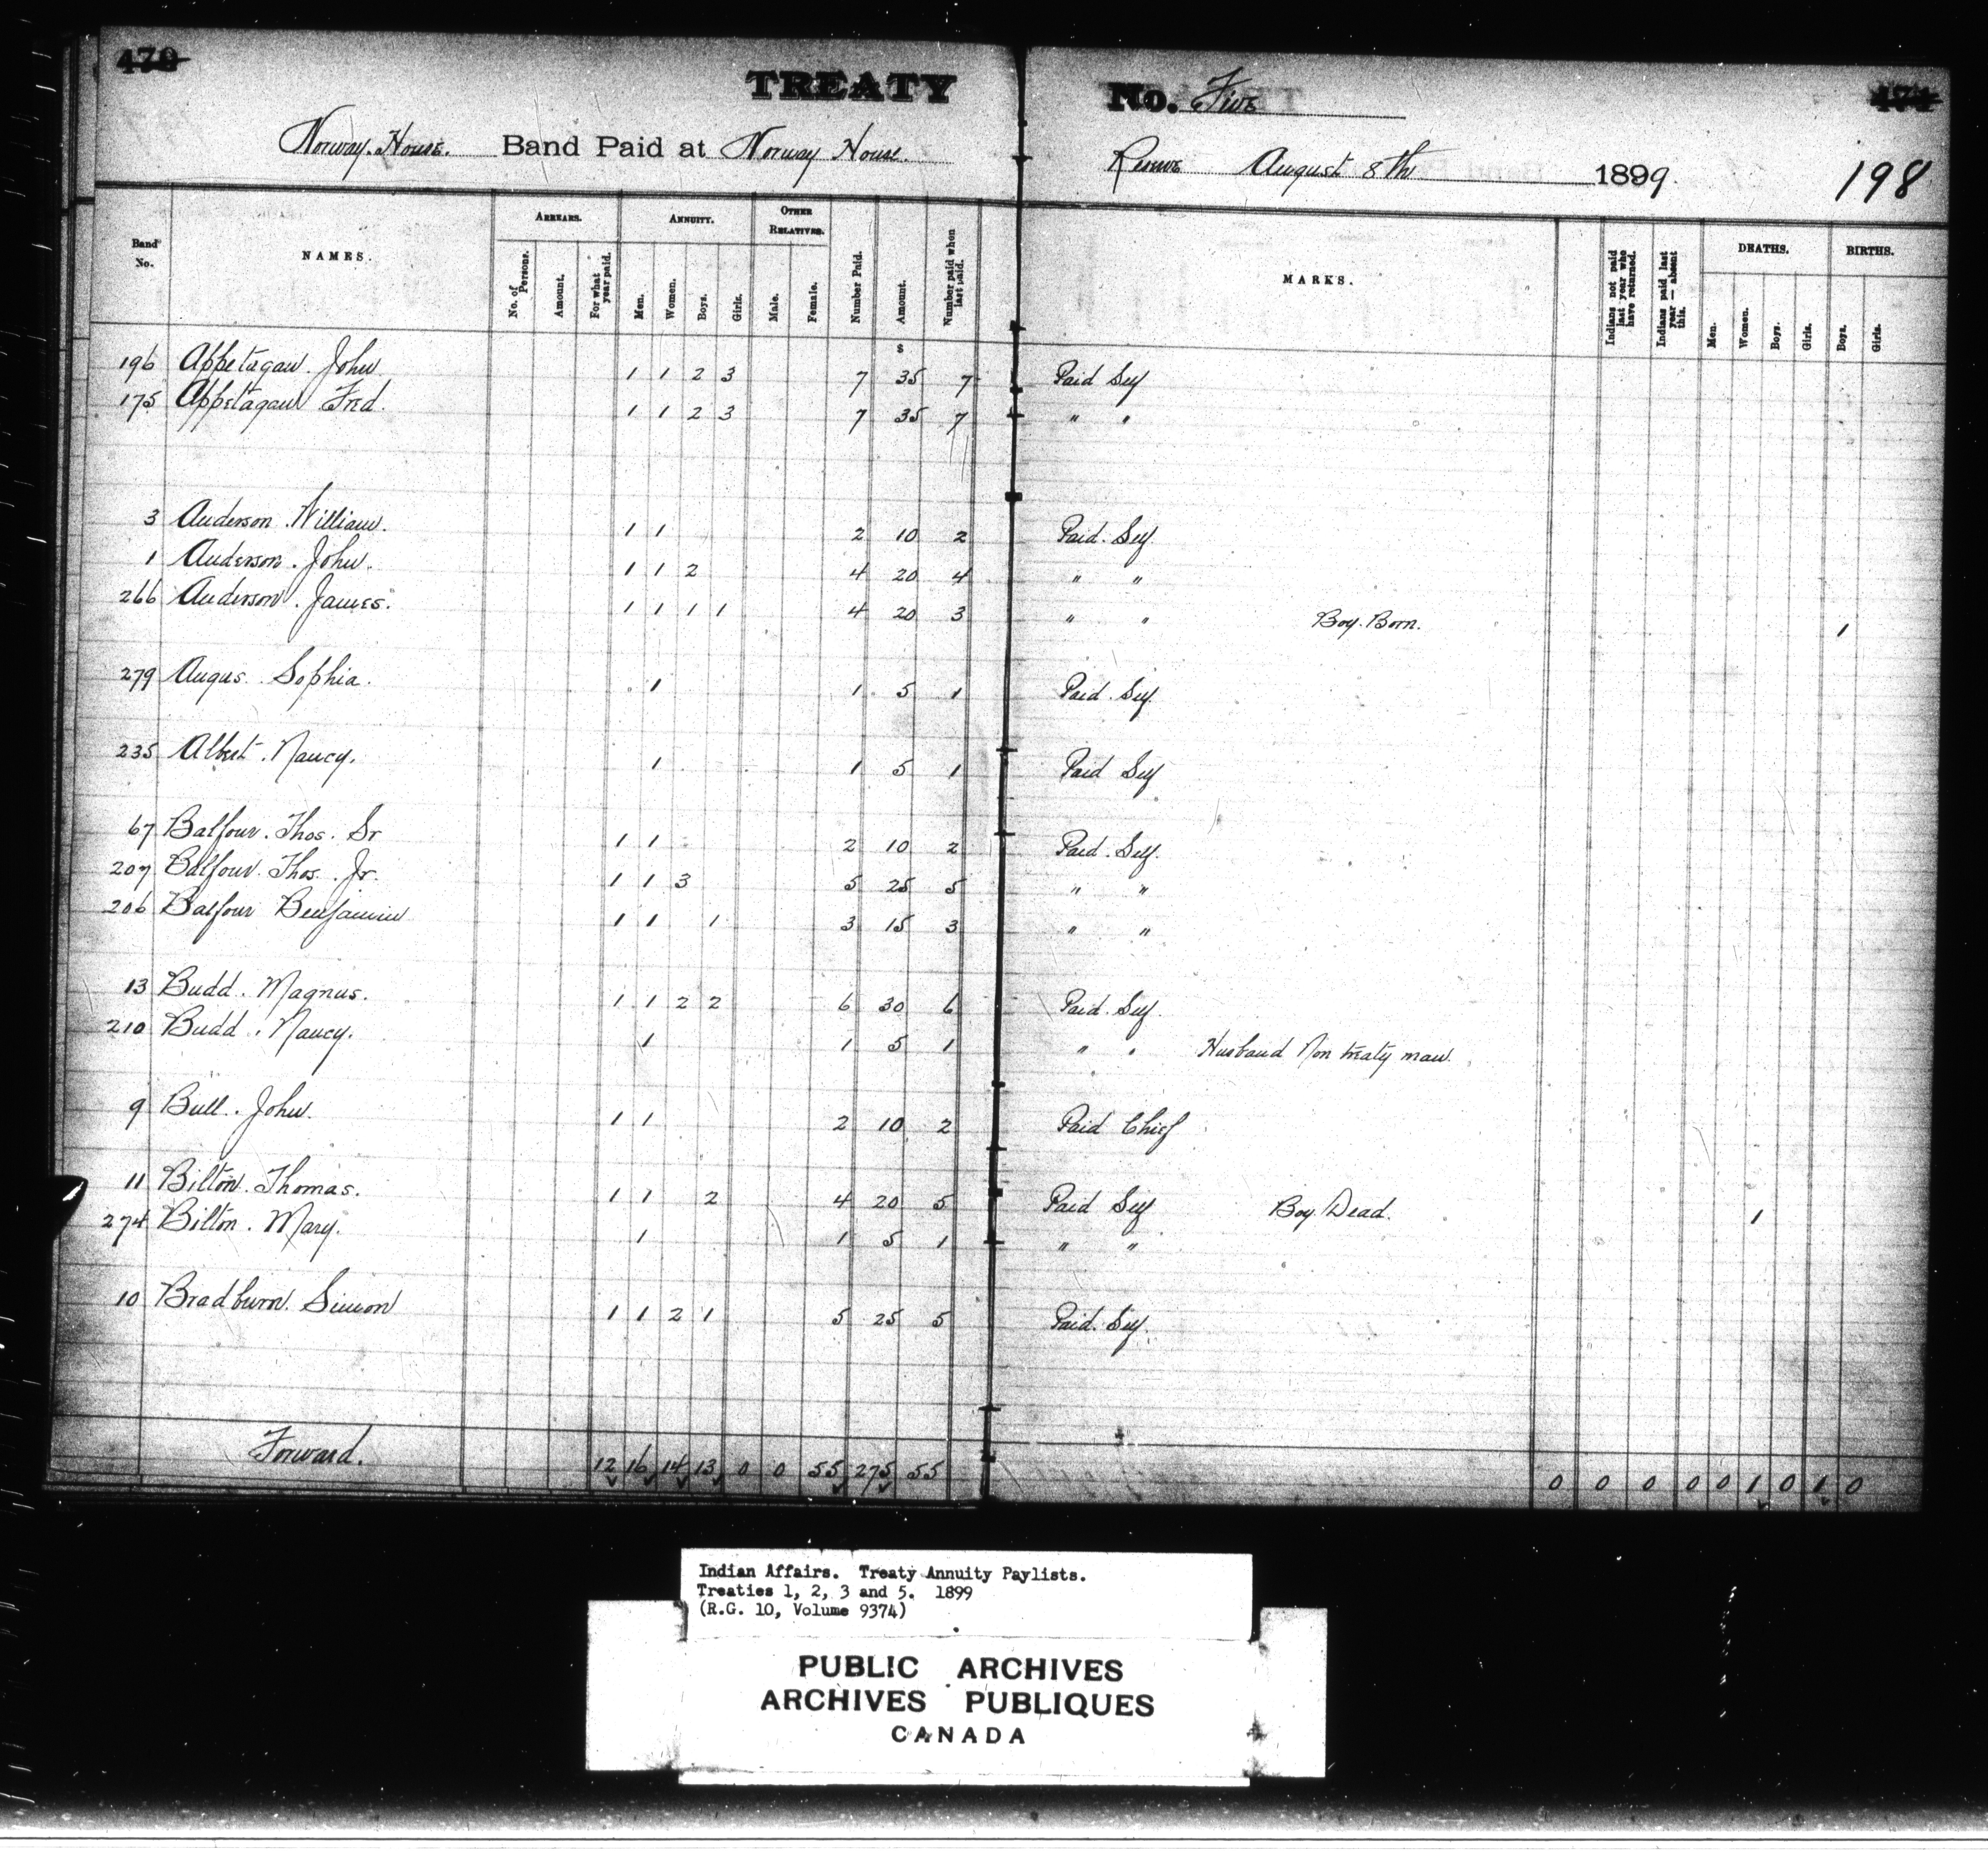 470 TREATY No. Five 471
Norway House. Band Paid at Norway House. Reserve August 8th 1899. 198
Band No. NAMES. ARREARS. No. of Persons. Amount. For what year paid. ANNUITY. Men. Women. Boys. Girls. OTHER RELATIVES. Male. Female. Number Paid. Amount. Number paid when last paid. MARKS. Indians not paid last year who have returned. Indians paid last year — absent this. DEATHS. Men. Women. Boys. Girls. BIRTHS. Boys. Girls.
$
196 Appetagaw. John 1 1 2 3 7 35 7 Paid Self
175 Appetagaw Fred. 1 1 2 3 7 35 7 " "
3 Anderson William. 1 1 2 10 2 Paid. Self
1 Anderson. John. 1 1 2 4 20 4 " "
266 Anderson. James. 1 1 1 1 4 20 3 " " Boy. Born. 1
279 Angus. Sophia. 1 1 5 1 Paid. Self.
235 Albert. Nancy. 1 1 5 1 Paid Self
67 Balfour. Thos. Sr 1 1 2 10 2 Paid. Self.
207 Balfour. Thos. Jr. 1 1 3 5 25 5 " "
206 Balfour Benjamin 1 1 1 3 15 3 " "
13 Budd. Magnus. 1 1 2 2 6 30 6 Paid. Self.
210 Budd. Nancy. 1 1 5 1 " " Husband Non treaty man.
9 Bull. John. 1 1 2 10 2 Paid Chief
11 Bilton. Thomas. 1 1 2 4 20 5 Paid Self Boy. Dead. 1
274 Bilton. Mary. 1 1 5 1 " "
10 Bradburn. Simon 1 1 2 1 5 25 5 Paid. Self.
Forward. 12 16 14 13 0 0 55 275 55 0 0 0 0 0 1 0 1 0
Indian Affairs. Treaty Annuity Paylists.
Treaties 1, 2, 3 and 5. 1899
(R.G. 10, Volume 9374)
PUBLIC ARCHIVES
ARCHIVES PUBLIQUES
CANADA